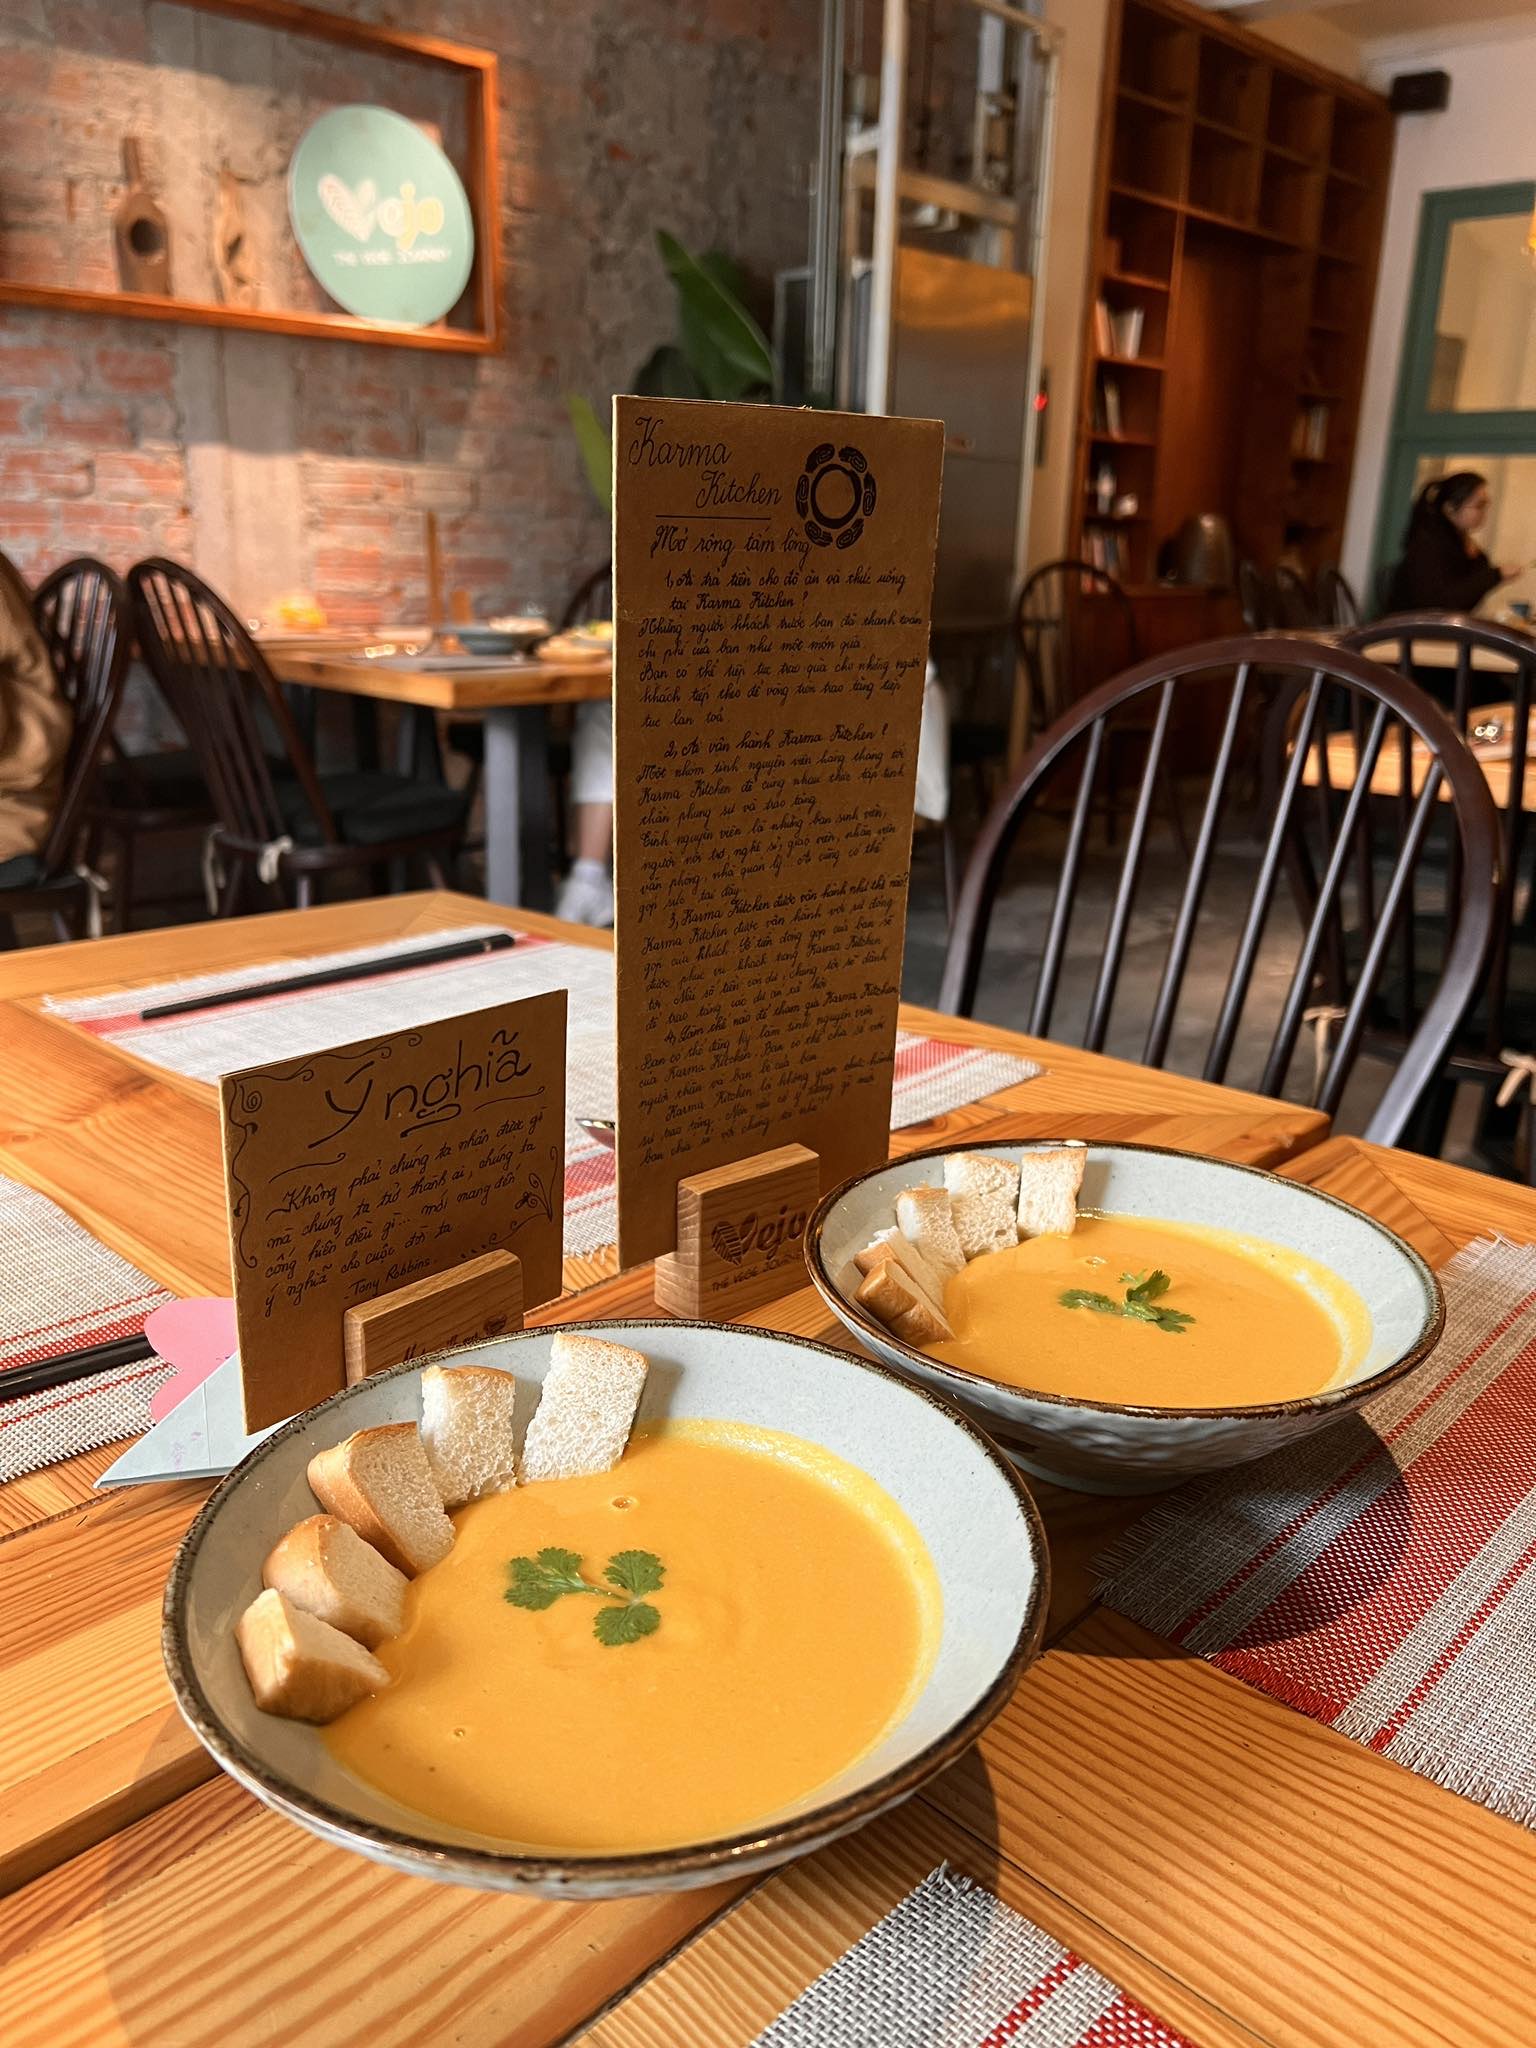 Vejo
THE VEGE JOURNEY
Karma
Kitchen
Mở rộng tấm lòng
1, Ai trả tiền cho đồ ăn và thức uống
tại Karma Kitchen ?
Những người khách trước bạn đã thanh toán
chi phí của bạn như một món quà.
Bạn có thể tiếp tục trao quà cho những người
khách tiếp theo để vòng tròn trao tặng tiếp
tục lan toả.
2, Ai vận hành Karma Kitchen ?
Một nhóm tình nguyện viên hàng tháng tới
Karma Kitchen để cùng nhau thực tập tinh
thần phụng sự và trao tặng.
Tình nguyện viên là những bạn sinh viên,
người nội trợ, nghệ sĩ, giáo viên, nhân viên
văn phòng, nhà quản lý. Ai cũng có thể
góp sức tại đây.
3, Karma Kitchen được vận hành như thế nào?
Karma Kitchen được vận hành với sự đóng
góp của khách. Số tiền đóng góp của bạn sẽ
được phục vụ khách hàng Karma Kitchen
tới. Nếu số tiền còn dư, chúng tôi sẽ dành
để trao tặng các dự án xã hội
4, Làm thế nào để tham gia Karma Kitchen
Bạn có thể đăng ký làm tình nguyện viên
của Karma Kitchen. Bạn có thể chia sẻ với
người thân và bạn bè của bạn
Karma Kitchen là không gian thực hành
sự trao tặng. Nếu có ý tưởng gì mới
bạn chia sẻ với chúng tôi nhé
Vejo
THE VEGE JOURNEY
Ý nghĩa
Không phải chúng ta nhận được gì
mà chúng ta trở thành ai, chúng ta
cống hiến điều gì... mới mang đến
ý nghĩa cho cuộc đời ta.
-Tony Robbins.